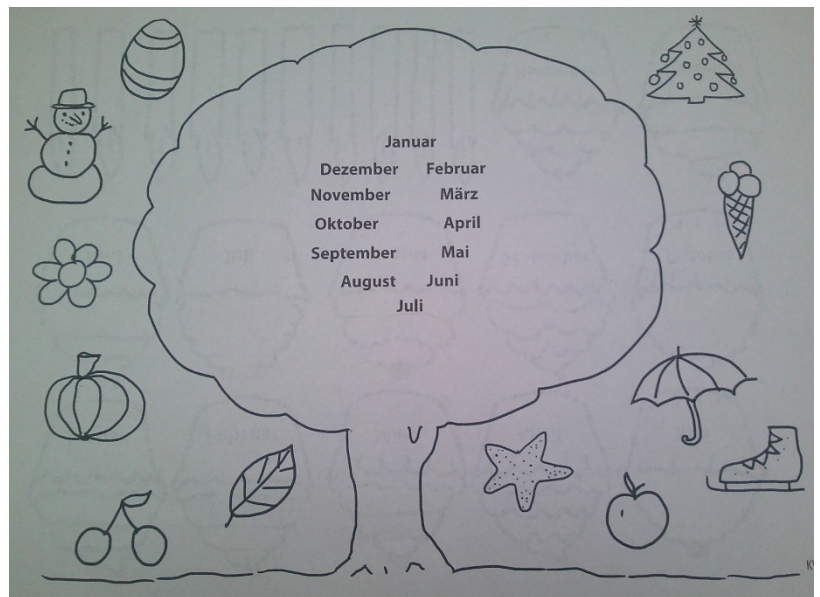 Januar
Dezember Februar
November März
Oktober April
September Mai
August Juni
Juli